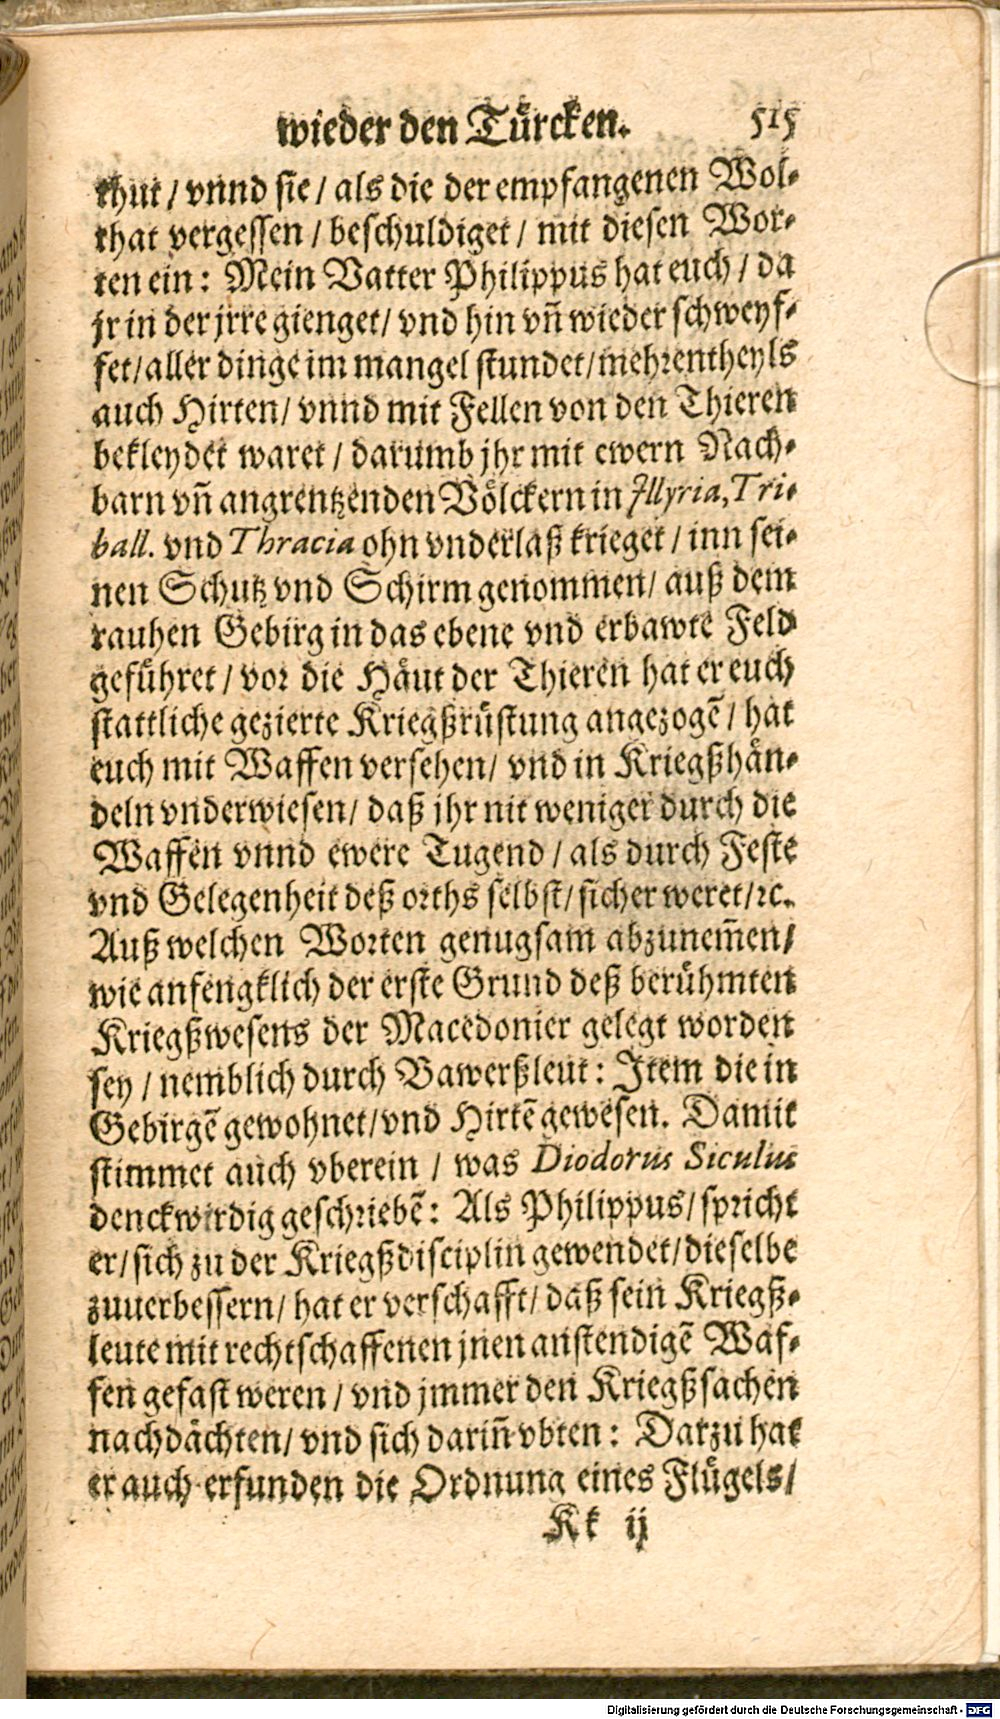 wieder den Tuͤrcken. 515
thut / vnnd sie / als die der empfangenen Wol-
that vergessen / beschuldiget / mit diesen Wor-
ten ein: Mein Vatter Philippus hat euch / da
jr in der jrre gienget/ vnd hin vñ wieder schweyf-
fet/aller dinge im mangel stundet/mehrentheyls
auch Hirten/ vnnd mit Fellen von den Thieren
bekleydet waret / darumb jhr mit ewern Nach-
barn vñ angrentzenden Voͤlckern in Jllyria, Tri-
ball. vnd Thracia ohn vnderlaß krieget / inn sei-
nen Schutz vnd Schirm genommen/ auß dem
rauhen Gebirg in das ebene vnd erbawte Feld
gefuͤhret / vor die Haͤut der Thieren hat er euch
stattliche gezierte Kriegßruͤstung angezogẽ / hat
euch mit Waffen versehen/ vnd in Kriegßhaͤn-
deln vnderwiesen/ daß jhr nit weniger durch die
Waffen vnnd ewere Tugend / als durch Feste
vnd Gelegenheit deß orths selbst/ sicher weret/ꝛc.
Auß welchen Worten genugsam abzunem̃en/
wie anfengklich der erste Grund deß beruͤhmten
Kriegßwesens der Macedonier gelegt worden
sey / nemblich durch Bawerßleut: Jtem die in
Gebirgẽ gewohnet/vnd Hirtẽ gewesen. Damit
stimmet auch vberein / was Diodorus Siculus
denckwirdig geschriebẽ: Als Philippus/ spricht
er/ sich zu der Kriegßdisciplin gewendet/dieselbe
zuuerbessern/ hat er verschafft/ daß sein Kriegß-
leute mit rechtschaffenen jnen anstendigẽ Waf-
fen gefast weren / vnd jmmer den Kriegßsachen
nachdaͤchten/ vnd sich darin̄ vbten: Darzu hat
er auch erfunden die Ordnung eines Fluͤgels/
Kk ij
Digitalisierung gefördert durch die Deutsche Forschungsgemeinschaft - DFG